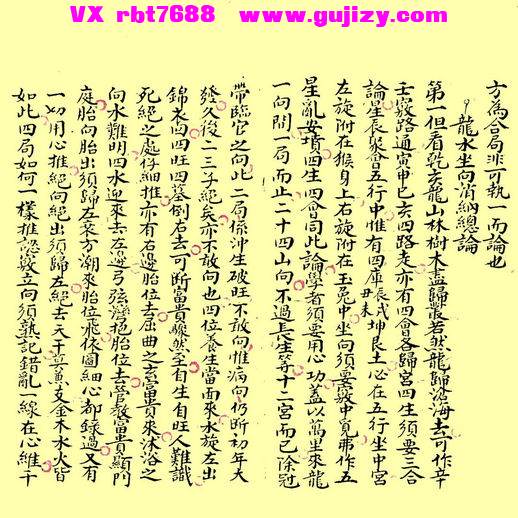 VX rbt7688 www.gujizy.com
方為合局非可執一而論也
龍水坐向消納總論
第一但看乾亥龍山林樹木盡歸叢若然龍歸滄海去可作辛
壬竅路通寅申巳亥四路走亦有四會各歸宮四生須要三合
論星辰聚會五行中惟有四庫辰戌丑未坤艮土必在五行坐中宮
左旋附在猴身上右旋附在玉兔中坐向須要竅中覓弗作五
星亂安墳四生四會同此論學者須要用心功蓋以萬里來龍
一向閧一局而止二十四山向不過長生等十二宮而已除冠
帶臨官之向此二局係沖生破旺不敢向惟病向仍斷初年大
發久後二三子絕矣亦不敢向也四位養生當面來水旋左出
錦衣四四旺四墓倒右去可斷富貴驟然至自生自旺人難識
死絕之處仔細推亦有右邊胎位去屈曲之玄富貴來沐浴之
向水難明四水迎來去左邊弓弦灣抱胎位去管教富貴顯門
庭胎向胎出須歸左衰方潮來胎位飛依圖細心都錄過又有
一切用心推絕向絕出須歸左絕去天干莫魚支金木水火皆
如此四局如何一樣推認竅立向須熟記錯亂一線在心維千